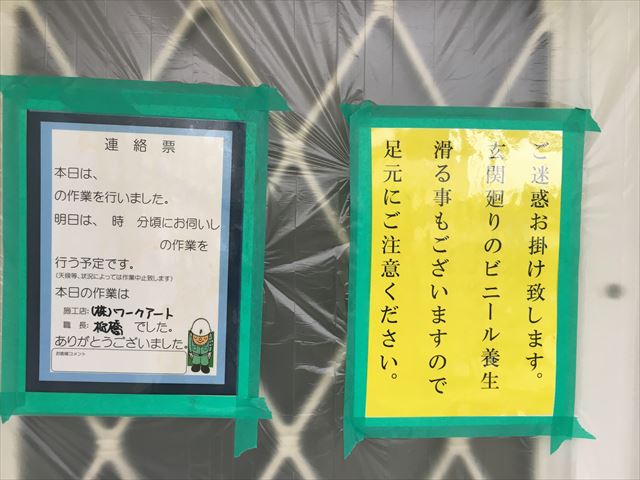 連絡票
本日は、
の作業を行いました。
明日は、 時 分頃にお伺いし
の作業を
行う予定です。
(天候等、状況によっては作業中止致します)
本日の作業は
施工店:(株)ワークアート
職 長: 板橋 でした。
ありがとうございました。
お客様コメント
ご迷惑お掛け致します。
玄関廻りのビニール養生
滑る事もございますので
足元にご注意ください。